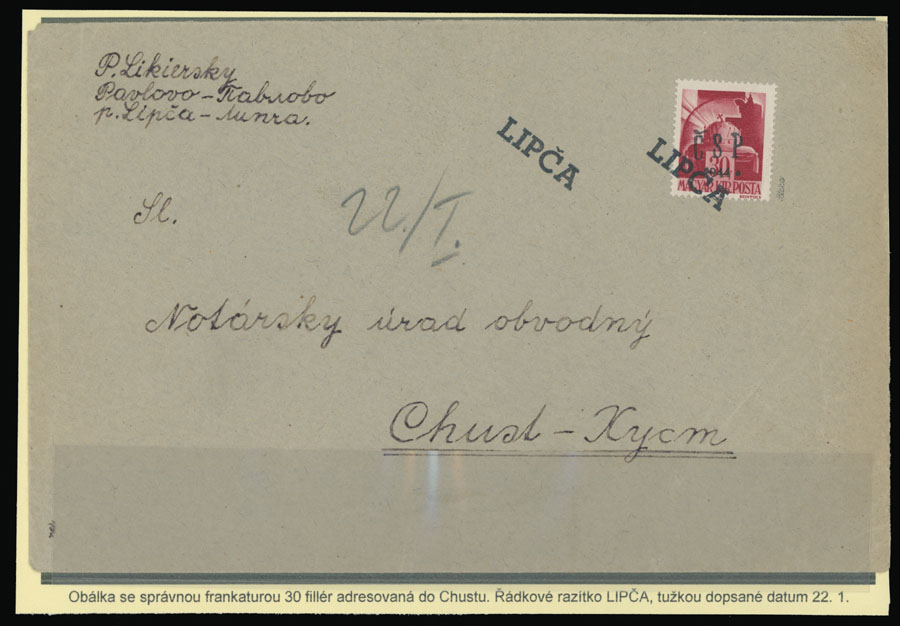 P. Likiersky
Pavlovo - Павлово
p. Lipča - Липча.
LIPČA
LIPČA
ČSP
30
MAGYAR KIR. POSTA
22/I.
Sl.
Notársky úrad obvodný
Chust - Хуст
Obálka se správnou frankaturou 30 fillér adresovaná do Chustu. Řádkové razítko LIPČA, tužkou dopsané datum 22. 1.